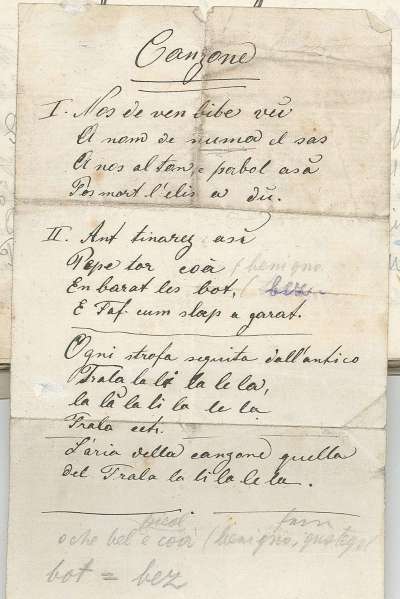 Canzone
I. Nos de ven bibe veü
A nom de numa el sas
A nos al tan, e parbol asä
Pos mort l'elis a dü.
II. Ant tinarez asä
Pepe tor coà (benigno
En barat les bot, ( bez
E Faf cum slap a garat.
Ogni strofa seguita dall'antico
Trala la li la le la,
la la la li la le la
Trala ecti.
L'aria della canzone quella
del Trala la li la le la.
o che bel e coà (benigno,
bot = bez